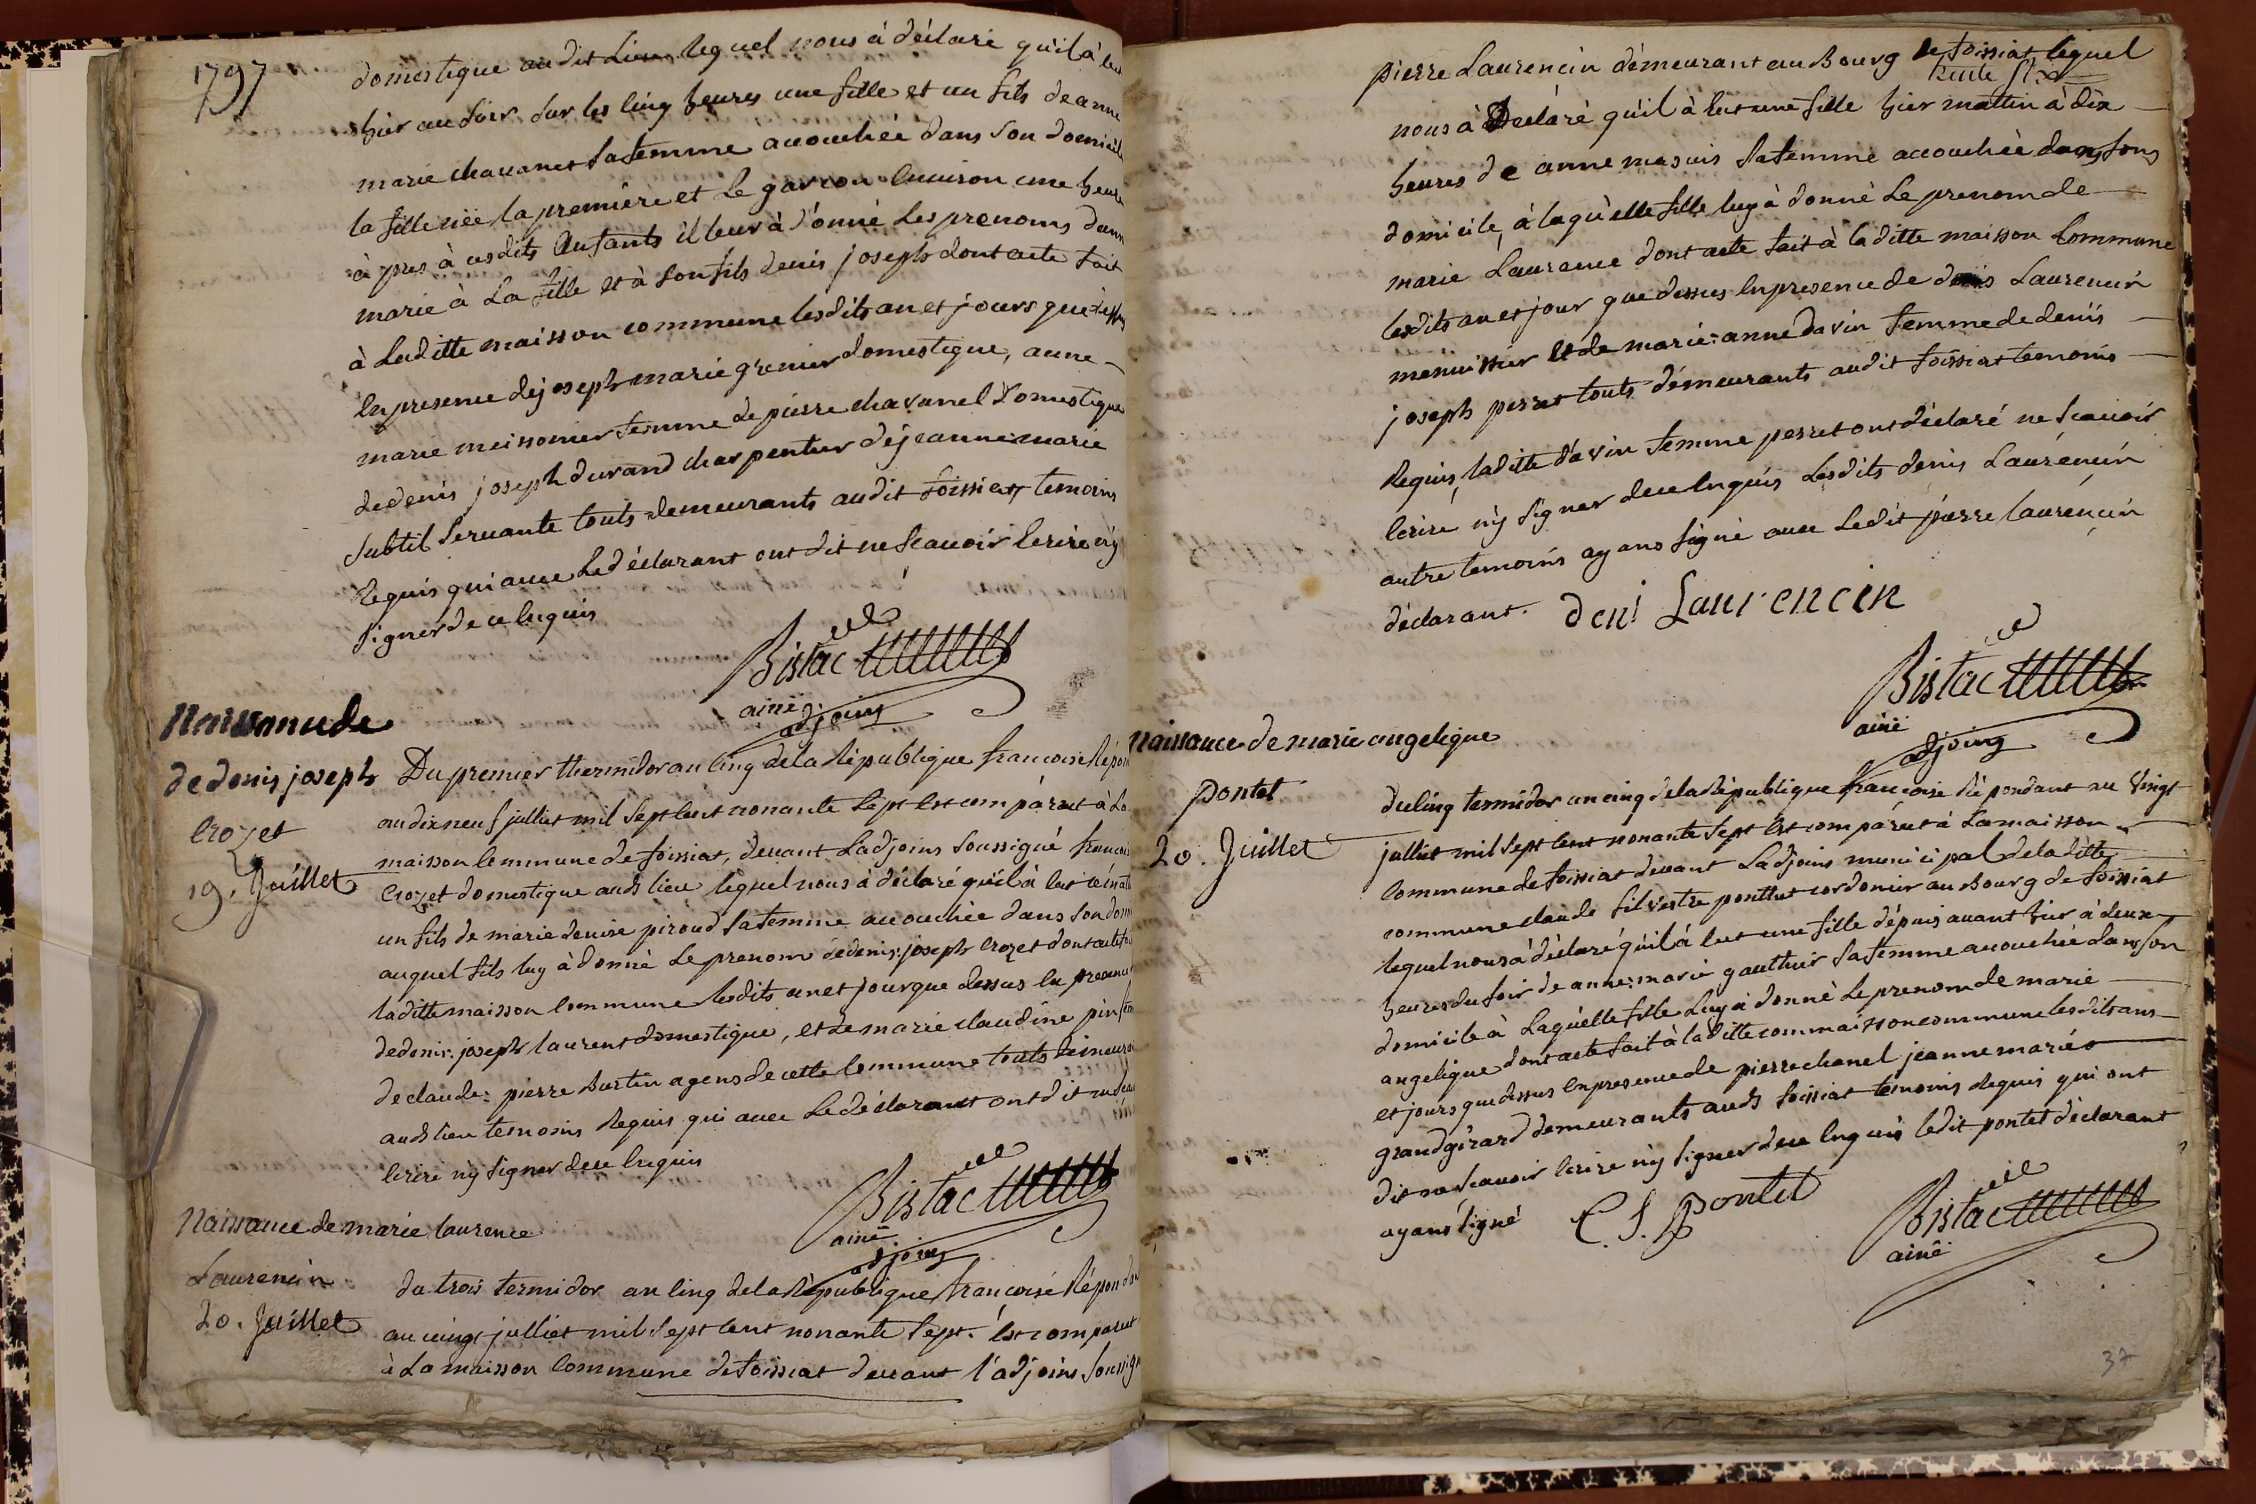 1797
domestique audit Lieu lequel nous à déclaré qu'il à eut
hier au soir sur les cinq heures une fille et un fils de anne
marie chavanet sa femme accouchée dans son domicile
la fille née la première et le garcon Environ une heure
à pres à cesdits Enfants il leur à donné Les prenoms danne
marie à La fille et à son fils denis joseph dont acte fait
à Laditte maisson commune lesdits an et jours que dessus
En presence de joseph marie grenier domestique, anne
marie meissonier femme de pierre chavanel Domestique
de denis joseph durand charpentier de jeanne marie
subtil servante touts demeurants audit foissiat temoins
Requis qui avec Le déclarant ont dit ne scavoir Ecrire n'y
signer de ce Enquis
Bistac
ainé
adjoins
Naissance de
de denis joseph
Crozet
19. Juillet
Du premier thermidor an Cinq de la République francoise Répon
au dix neuf julliet mil sept Cent nonante Sept Est comparut à La
maisson Commune de foissiat, devant L'adjoins soussigné francois
Crozet domestique auds lieu lequel nous à déclaré qu'il à Eut ce
un fils de marie denise piroud sa femme accouchée dans son dom
auquel fils luy à donné Le prenom de denis: joseph Crozet dont acte
laditte maisson Commune lesdits an et jour que dessus En presence
de denis: joseph laurent domestique, Et de marie claudine pin
de claude: pierre Burtin agens de cette Commune touts demeura
auds lieu temoins Requis qui avec Le déclarant ont dit
Ecrire n'y signer de ce Enquis
Bistac
ainé
adjoins
Naissance de marie laurence
Laurencin
20. Juillet
du trois termidor an Cinq de la République francoise Répond
au vingt julliet mil Sept Cent nonante Sept. Est comparut
à La maisson Commune de foissiat devant l'adjoins soussign
pierre Laurencin demeurant au Bourg de foissiat lequel
nous à Declaré qu'il à Eut une fille hier mattin à dix
heures de anne mesuis sa femme accouchée dans sons
domicile, à laquelle fille luy à donné Le prenom de
marie Laurance dont acte fait à laditte maisson Commune
lesdits an et jour que dessus En presence de denis Laurencin
menuissier Et de marie: anne davin femme de denis
joseph perret touts demeurants audit foissiat temoins
Requis, laditte davin femme perret ont déclaré ne scavoir
Ecrire n'y signer de ce Enquis Lesdits denis Laurencin
autre temoins ayans signé avec Ledit pierre laurencin
déclarant. deni Laurencin
Bistac
ainé
adjoins
Naissance de marie angelique
Pontet
20. Juillet
du Cinq termidor an cinq de la République francoise Répondant au Vingt
julliet mil Sept Cent nonante Sept Est comparut à La maisson
Commune de foissiat devant L'adjoins municipal de laditte
commune claude silvestre ponthet cordonier au Bourg de foissiat
lequel nous à déclaré qu'il à Eut une fille dépuis avant hier à deux
heures du soir de anne: marie gauthier sa femme accouchée dans son
domicile à Laquelle fille Luy à donné Le prenom de marie
angelique dont acte fait à laditte com maisson commune lesdits ans
et jours que dessus En presence de pierre chanel jeanne mariée
grandgirard demeurants auds foissiat temoins Requis qui ont
dit ne scavoir Ecrire n'y signer de ce Enquis ledit pontet déclarant
ayans signé C. S. Pontet
Bistac
ainé
37